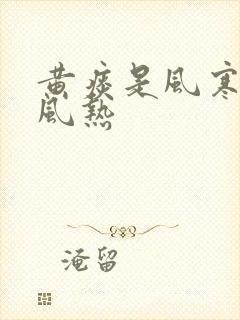 黄痰是风寒
风热
淹留